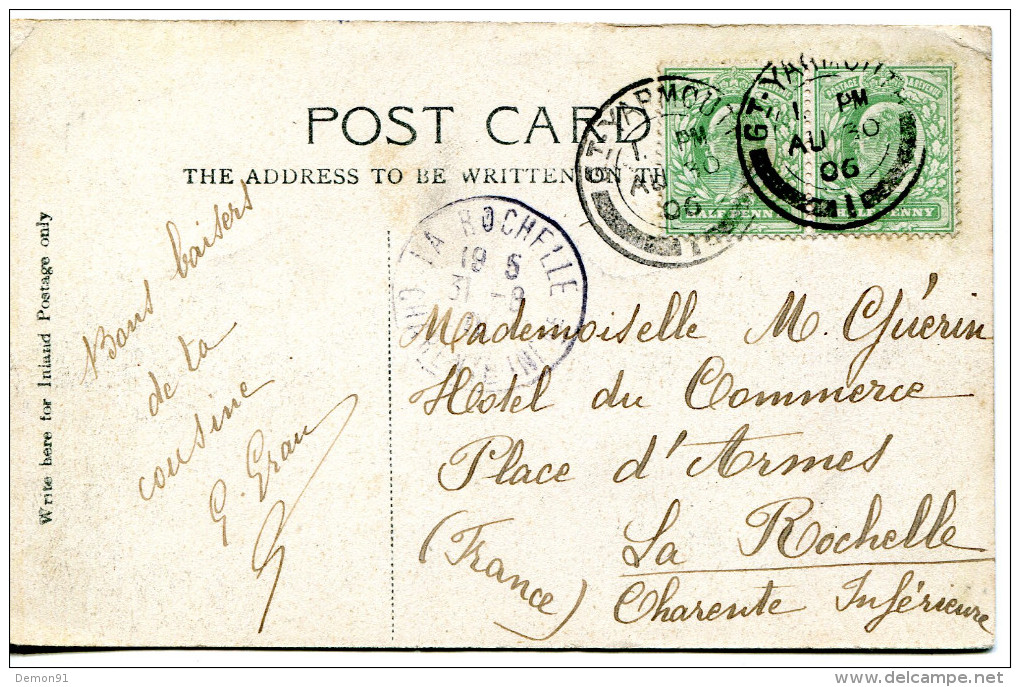 POST CARD
THE ADDRESS TO BE WRITTEN ON TH
Write here for Inland Postage only
Bons baisers
de ta
cousine
G. Grau
Mademoiselle M. Guérin
Hotel du Commerce
Place d'Armes
La Rochelle
(France)
Charente Inférieure
GT. YARMOU
1. PM
AU 30
06
GT. YARMOUTH
1. PM
AU 30
06
HALF PENNY
HALF PENNY
LA ROCHELLE
31 -8
Demon91
delcampe.net